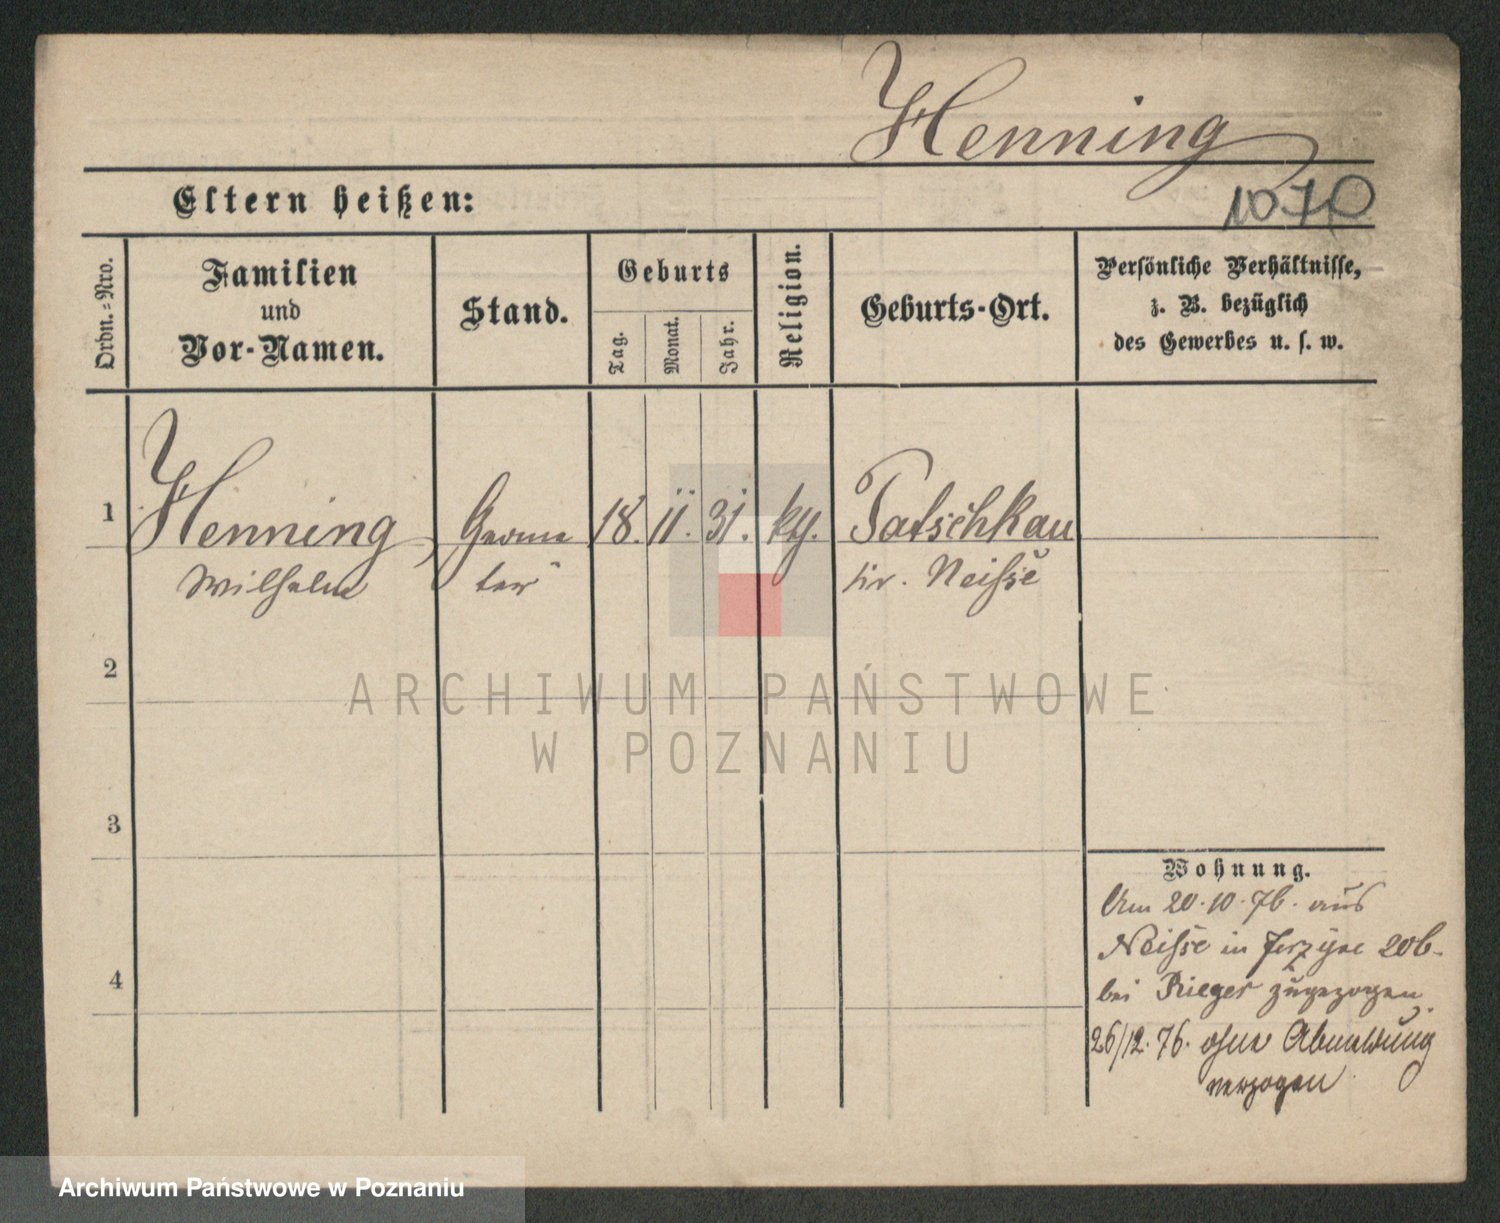 Henning
1070
Eltern heißen:
Ordn.=Nro.
Familien
und
Vor-Namen.
Stand.
Geburts
Tag.
Monat.
Jahr.
Religion.
Geburts-Ort.
Persönliche Verhältnisse,
z. B. bezüglich
des Gewerbes u. s. w.
1
Henning,
Wilhelm
Geome
ter
18. 11. 31. kth. Patschkau
kr. Neisse
2
3
4
Wohnung.
Am 20.10.76. aus
Neisse in 20b.
bei Rieger zugezogen.
26/12. 76. ohne Abmeldung
verzogen
ARCHIWUM PAŃSTWOWE
W POZNANIU
Archiwum Państwowe w Poznaniu